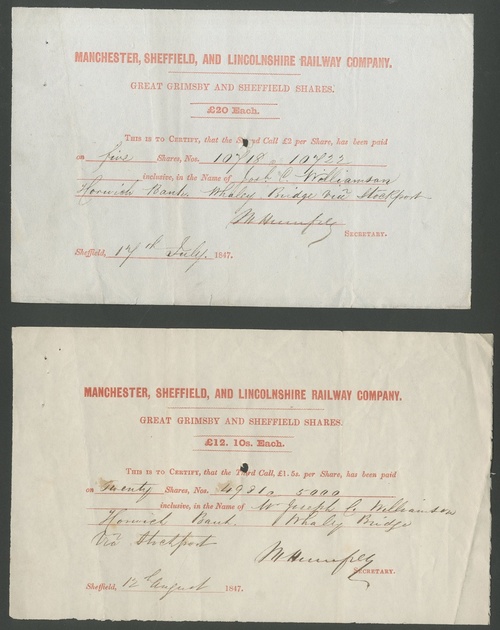 MANCHESTER, SHEFFIELD, AND LINCOLNSHIRE RAILWAY COMPANY.
GREAT GRIMSBY AND SHEFFIELD SHARES.
£20 Each.
THIS IS TO CERTIFY, that the Second Call £2 per Share, has been paid
on five Shares, Nos. 10718 a 10722
inclusive, in the Name of Josh C. Williamson
Horwich Bank, Whaley Bridge via Stockport
SECRETARY.
Sheffield, 17th July, 1847.
MANCHESTER, SHEFFIELD, AND LINCOLNSHIRE RAILWAY COMPANY.
GREAT GRIMSBY AND SHEFFIELD SHARES.
£12. 10s. Each.
THIS IS TO CERTIFY, that the Third Call, £1.5s. per Share, has been paid
on Twenty Shares, Nos. 4981 a 5000
inclusive, in the Name of Mr Joseph C. Williamson
Horwich Bank. Whaley Bridge
Via Stockport
SECRETARY.
Sheffield, 12th August 1847.